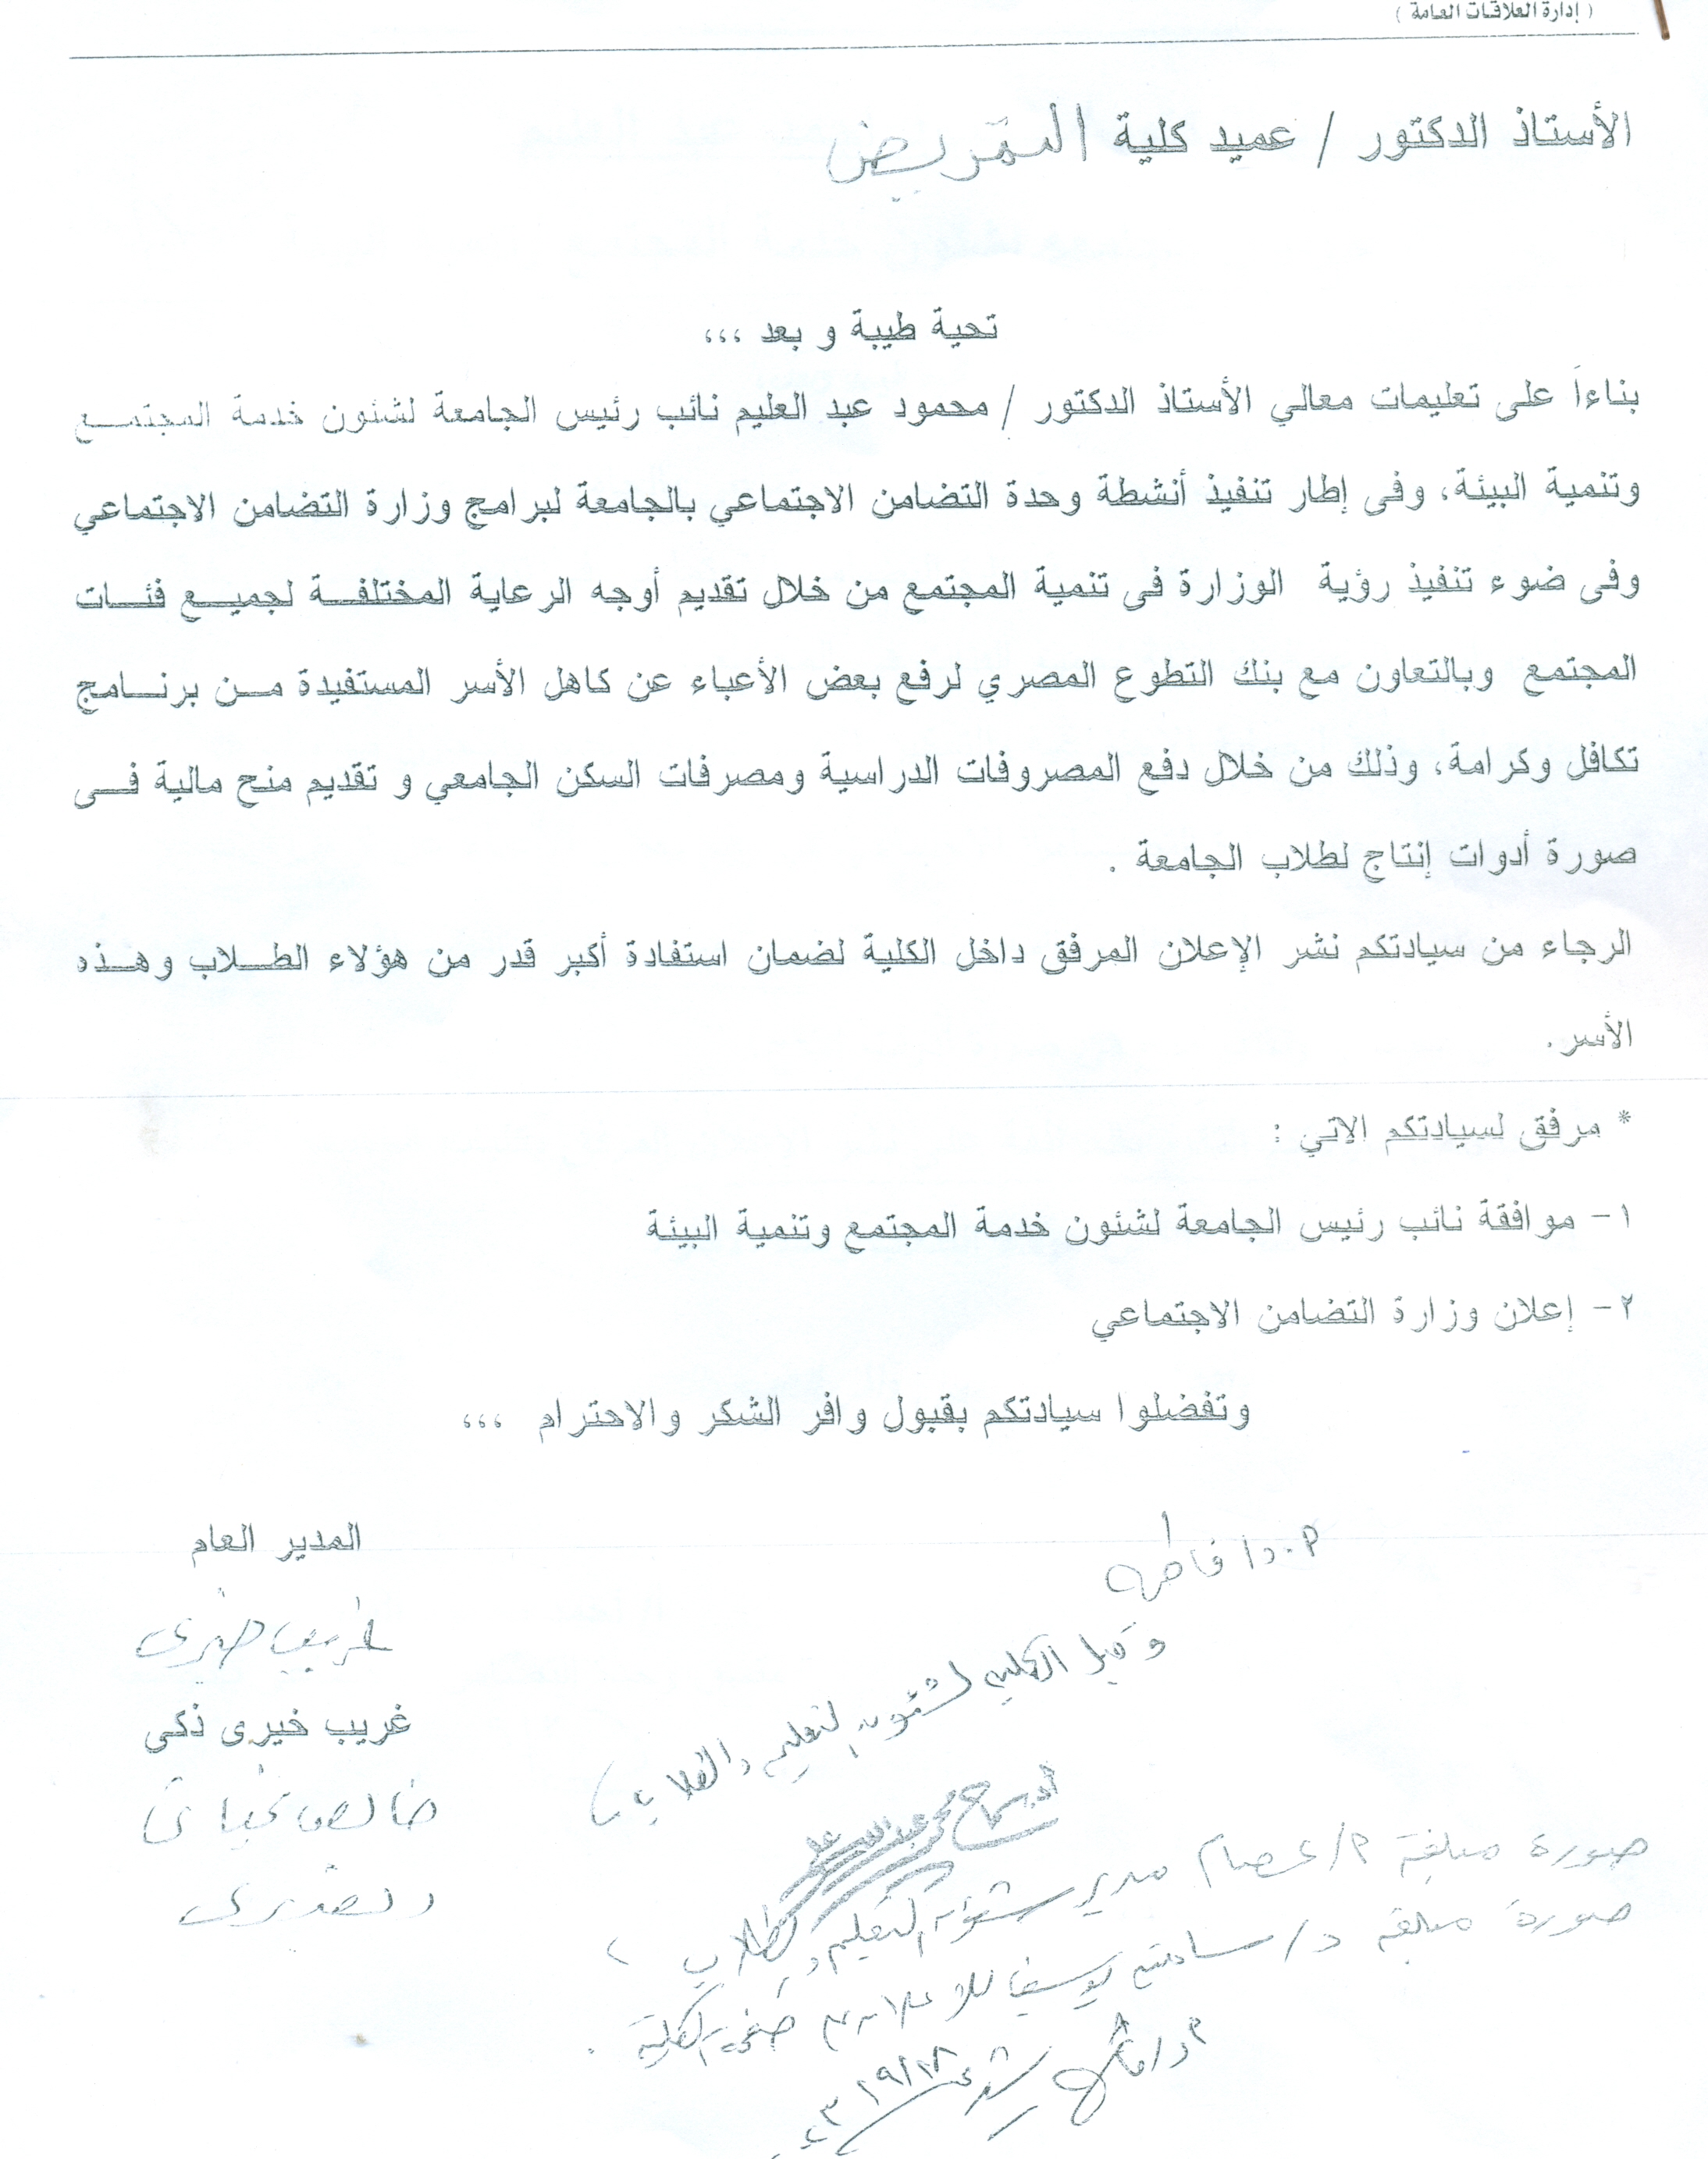 ( إدارة العلاقات العامة )
الأستاذ الدكتور / عميد كلية التمريض
تحية طيبة و بعد ،،،
بناءاً على تعليمات معالي الأستاذ الدكتور / محمود عبد العليم نائب رئيس الجامعة لشئون خدمة المجتمع
وتنمية البيئة، وفى إطار تنفيذ أنشطة وحدة التضامن الاجتماعي بالجامعة لبرامج وزارة التضامن الاجتماعي
وفى ضوء تنفيذ رؤية الوزارة فى تنمية المجتمع من خلال تقديم أوجه الرعاية المختلفة لجميع فئات
المجتمع وبالتعاون مع بنك التطوع المصري لرفع بعض الأعباء عن كاهل الأسر المستفيدة من برنامج
تكافل وكرامة، وذلك من خلال دفع المصروفات الدراسية ومصرفات السكن الجامعي و تقديم منح مالية فى
صورة أدوات إنتاج لطلاب الجامعة .
الرجاء من سيادتكم نشر الإعلان المرفق داخل الكلية لضمان استفادة أكبر قدر من هؤلاء الطلاب وهذه
الأسر.
* مرفق لسيادتكم الاتي :
١- موافقة نائب رئيس الجامعة لشئون خدمة المجتمع وتنمية البيئة
٢- إعلان وزارة التضامن الاجتماعي
وتفضلوا سيادتكم بقبول وافر الشكر والاحترام ،،،
المدير العام
غريب خيرى
غريب خيرى ذكى
خالص تحياتى
وتقديرى
أ.د/ فاطمة
وكيل الكلية لشئون التعليم والطلاب
صورة مبلغة أ/ عصام مدير شئون التعليم والطلاب
صورة مبلغة د/ سامح يوسف للإعلان صفحة الكلية .